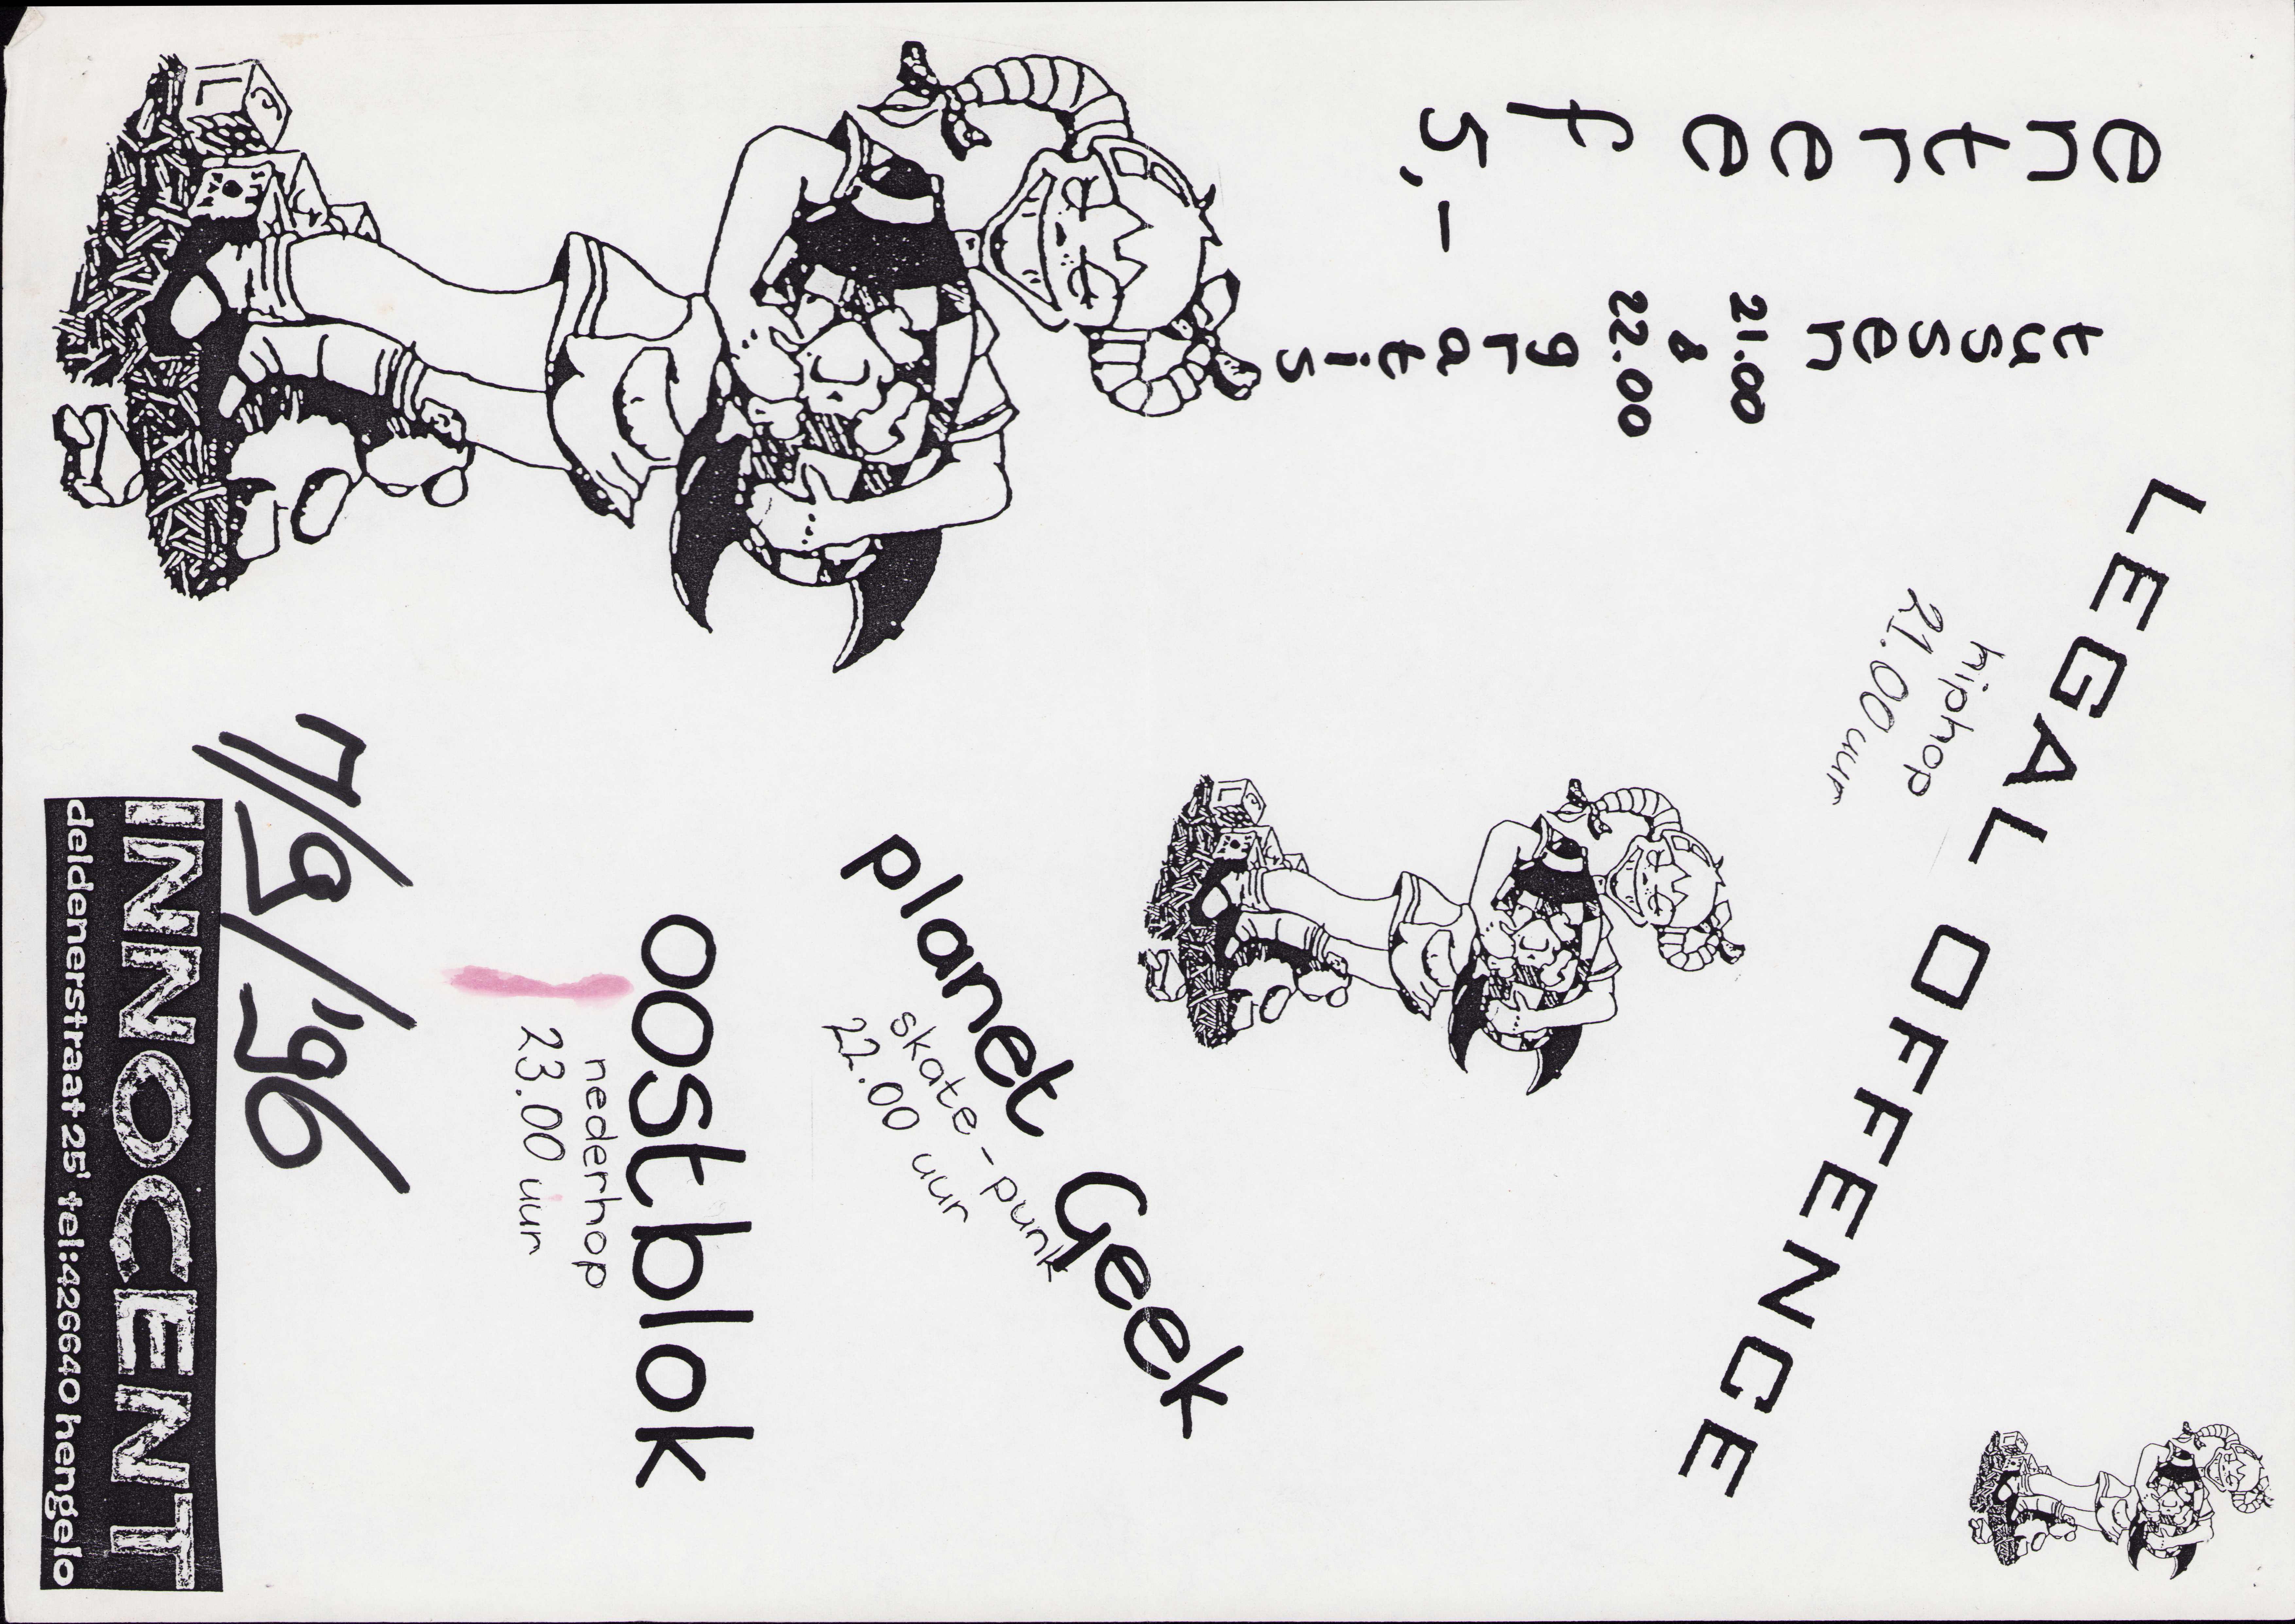 LEGAL OFFENCE
hiphop
21.00 uur
entree f 5,-
tussen 21.00 & 22.00 gratis
planet Geek
skate-punk
22.00 uur
oostblok
nederhop
23.00 uur
7/9/'96
INNOCENT
deldenerstraat 25' tel:426640 hengelo